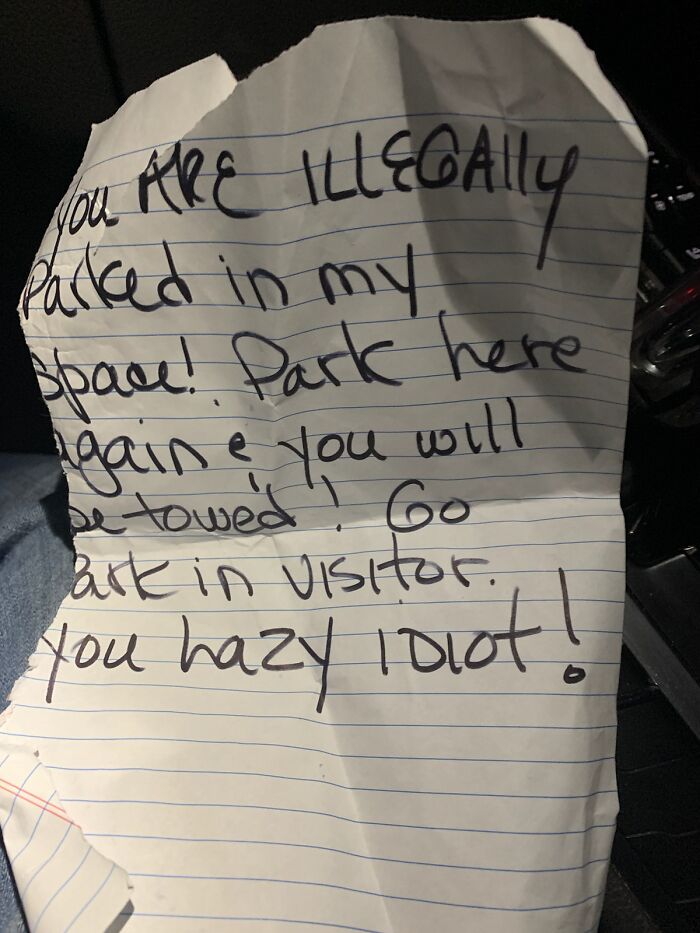 You ARE ILLEGAlly
Parked in my
space! Park here
again & you will
be towed! Go
Park in visitor.
you hazy IDIot!